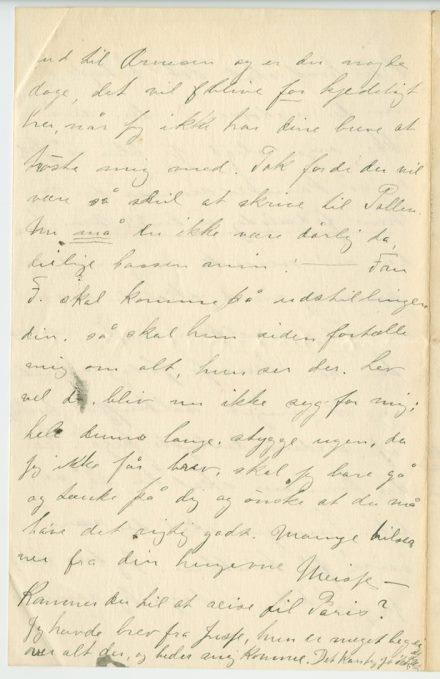 ud til Arnesen og er der nogle
dage, det vil blive for kjedeligt
her, når jeg ikke har dine breve at
trøste mig med. Tak fordi du vil
være så snil at skrive til Pollen.
Nu må du ikke være dårlig da,
deilige bassen min! — Fru
F. skal komme på udstillingen
din, så skal hun siden fortælle
mig om alt, hun ser der. Lev
vel da, bliv nu ikke syg for mig;
hele denne lange, stygge ugen, da
jeg ikke får brev, skal jeg bare gå
og tænke på dig og ønske at du må
have det rigtig godt. Mange hilse
ner fra din hengivne Meisse —
Kommer du til at reise til Paris?
Jeg havde brev fra hun er meget
over alt der, og beder mig komme. Det kan jeg jo ikke